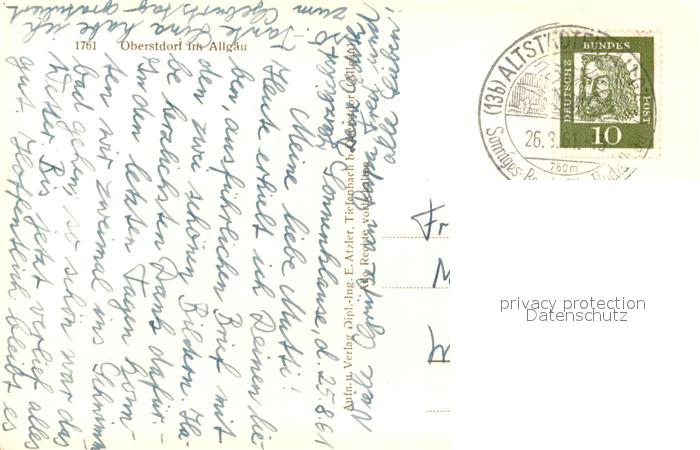 1761 Oberstdorf im Allgäu
Aufn. u. Verlag Dipl.-Ing. E. Atzler, Tiefenbach b. Oberstdorf (Allgäu)
Alle Rechte vorbehalten
Sonnenklause, d. 25.8.61
Meine liebe Mutti!
Heute erhielt ich Deinen lie-
ben, ausführlichen Brief mit
den zwei schönen Bildern. Ha-
be herzlichsten Dank dafür. -
In den letzten Tagen konn-
ten wir zweimal ins Schwimm-
bad gehen; so schön war das
Wetter. Bis jetzt verlief alles
gut. Hoffentlich bleibt es
so
Tante Lina habe ich
zum Geburtstag gratuliert.
Viele Grüsse
alle Lieben!
Fr
M
W
(13b) ALTSTÄDTEN
26. 8. 61
Sonniges
760m
DEUTSCHE
BUNDES
POST
10
privacy protection
Datenschutz